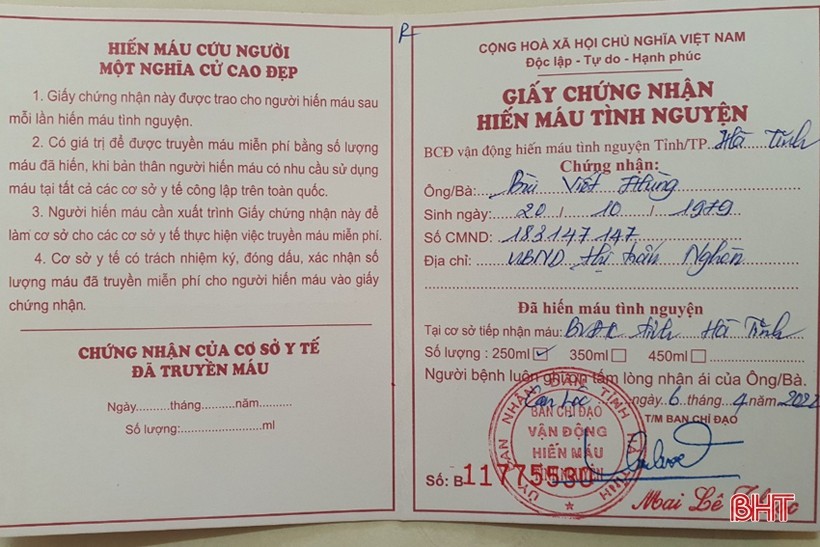 HIẾN MÁU CỨU NGƯỜI
MỘT NGHĨA CỬ CAO ĐẸP
1. Giấy chứng nhận này được trao cho người hiến máu sau
mỗi lần hiến máu tình nguyện.
2. Có giá trị để được truyền máu miễn phí bằng số lượng
máu đã hiến, khi bản thân người hiến máu có nhu cầu sử dụng
máu tại tất cả các cơ sở y tế công lập trên toàn quốc.
3. Người hiến máu cần xuất trình Giấy chứng nhận này để
làm cơ sở cho các cơ sở y tế thực hiện việc truyền máu miễn phí.
4. Cơ sở y tế có trách nhiệm ký, đóng dấu, xác nhận số
lượng máu đã truyền miễn phí cho người hiến máu vào giấy
chứng nhận.
CHỨNG NHẬN CỦA CƠ SỞ Y TẾ
ĐÃ TRUYỀN MÁU
Ngày..........tháng.........năm..........
Số lượng:...........................ml
R
CỘNG HOÀ XÃ HỘI CHỦ NGHĨA VIỆT NAM
Độc lập - Tự do - Hạnh phúc
GIẤY CHỨNG NHẬN
HIẾN MÁU TÌNH NGUYỆN
BCĐ vận động hiến máu tình nguyện Tỉnh/TP Hà Tĩnh
Chứng nhận:
Ông/Bà: Bùi Viết Hùng
Sinh ngày: 20 / 10 / 1979
Số CMND: 183147147
Địa chỉ: UBND Thị trấn Nghèn
Đã hiến máu tình nguyện
Tại cơ sở tiếp nhận máu: BVĐK tỉnh Hà Tĩnh
Số lượng : 250ml 350ml 450ml
Người bệnh luôn ghi ơn tấm lòng nhân ái của Ông/Bà.
Can Lộc ngày 6 tháng 4 năm 2022
T/M BAN CHỈ ĐẠO
ỦY BAN NHÂN DÂN TỈNH HÀ TĨNH
BAN CHỈ ĐẠO
VẬN ĐỘNG
HIẾN MÁU
Số: B 11775530
Mai Lê
BHT